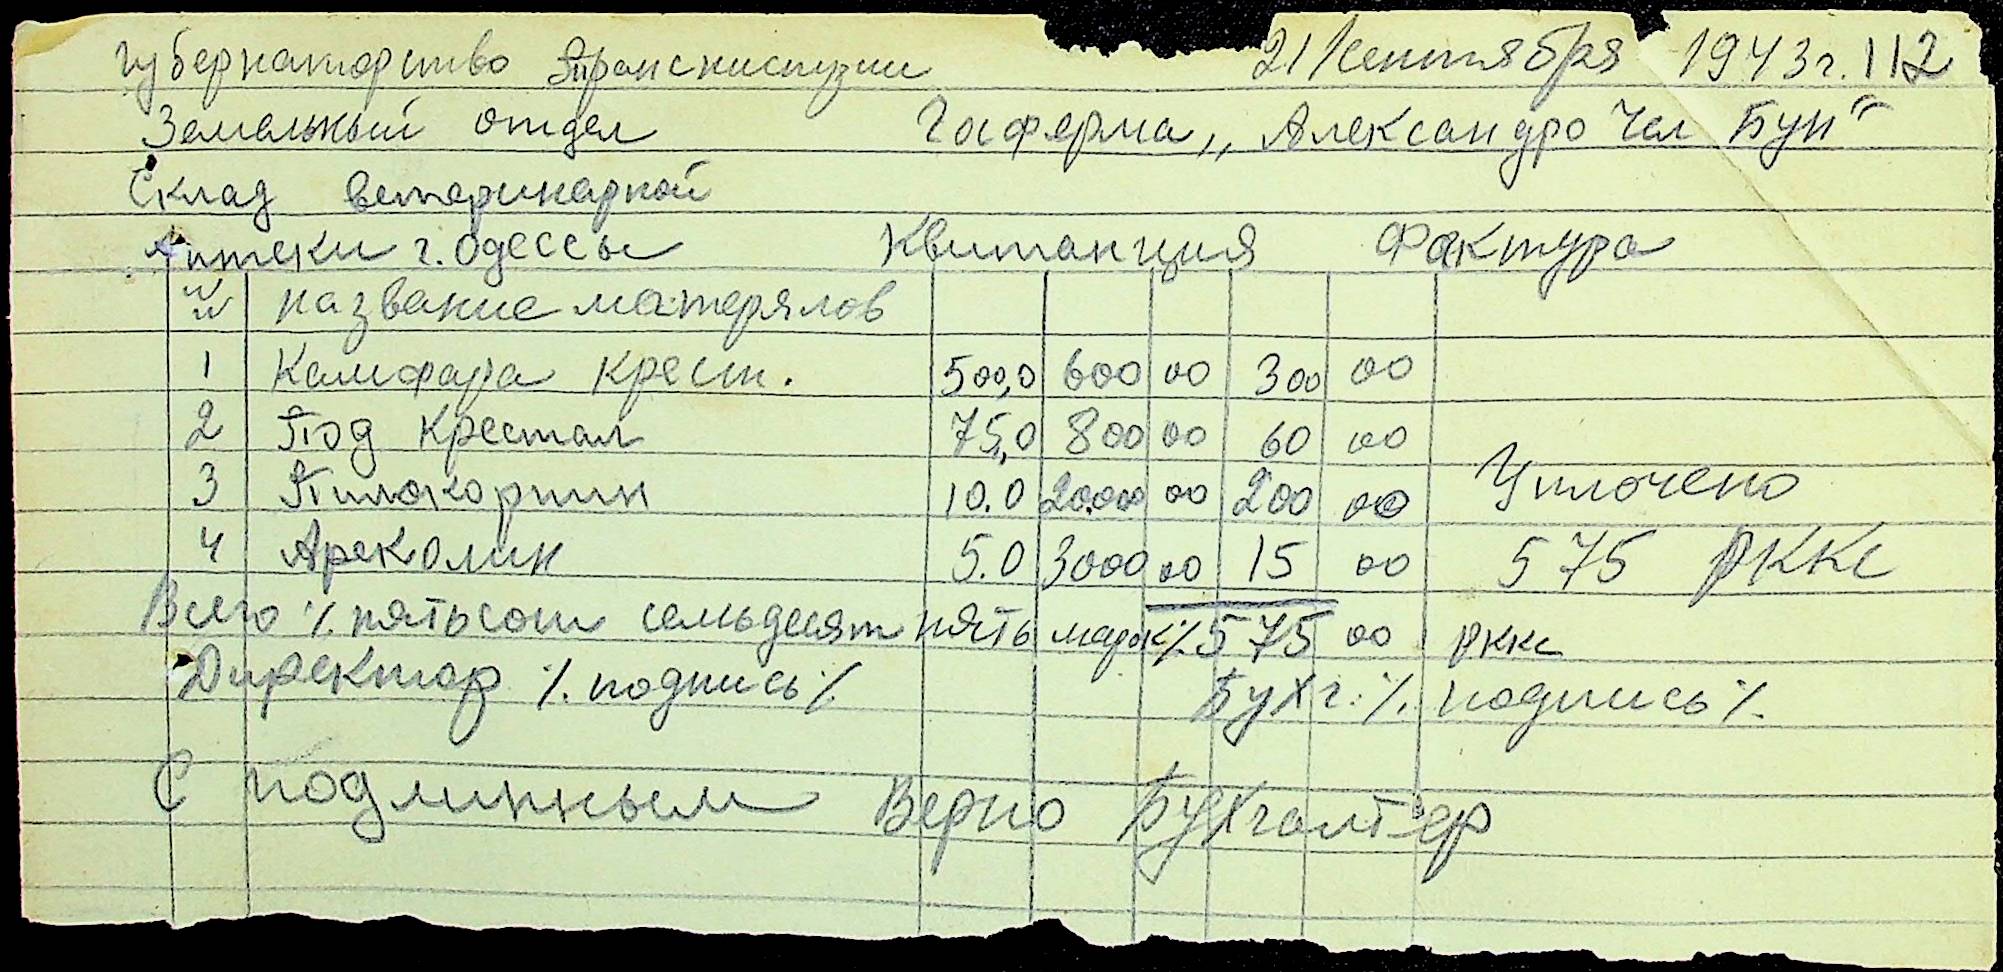 Губернаторство Транснистрии 21 сентября 1943 г. 112
Земельный отдел Госферма „Александро Чел Бун“
Склад ветеринарной
Аптеки г. Одессы Квитанция Фактура
№ название матерялов
1 Камфара крест. 500,0 600 00 300 00
2 Иод Кресталл 75,0 800 00 60 00
3 Пилокорпин 10.0 20.000 00 200 00 Уплочено
4 Ареколин 5.0 3000 00 15 00 575 РККС
Всего % пятьсот семьдесят пять марок % 575 00 рккс
Директор %. подпись % Бухг. %. подпись %.
С подлинным Верно Бухгалтер